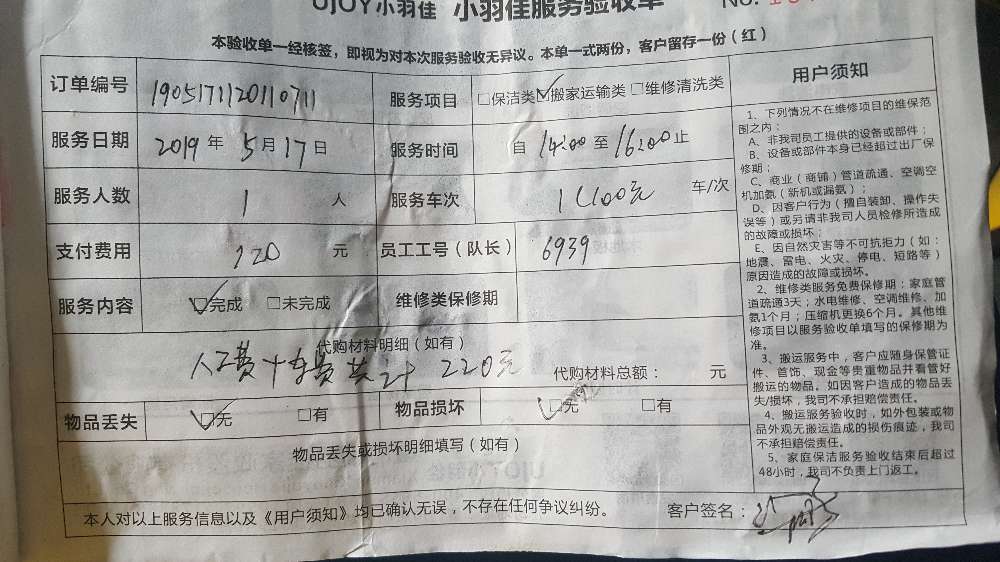 UJOY小羽佳 小羽佳服务验收单 No.
本验收单一经核签，即视为对本次服务验收无异议。本单一式两份，客户留存一份（红）
订单编号 1905171120110711 服务项目 □保洁类 ☑搬家运输类 □维修清洗类
服务日期 2019 年 5 月 17 日 服务时间 自 14:00 至 16:00 止
服务人数 1 人 服务车次 1（100元 车/次
支付费用 120 元 员工工号（队长） 6939
服务内容 ☑完成 □未完成 维修类保修期
代购材料明细（如有）
人工费+车费共计 220元 代购材料总额： 元
物品丢失 ☑无 □有 物品损坏 ☑无 □有
物品丢失或损坏明细填写（如有）
本人对以上服务信息以及《用户须知》均已确认无误，不存在任何争议纠纷。 客户签名：
用户须知
1、下列情况不在维修项目的维保范
围之内：
A、非我司员工提供的设备或部件；
B、设备或部件本身已经超过出厂保
修期；
C、商业（商铺）管道疏通、空调空
机加氨（新机或漏氨）；
D、因客户行为（擅自装卸、操作失
误等）或另请非我司人员检修所造成
的故障或损坏；
E、因自然灾害等不可抗拒力（如：
地震、雷电、火灾、停电、短路等）
原因造成的故障或损坏。
2、维修类服务免费保修期：家庭管
道疏通3天；水电维修、空调维修、加
氨1个月；压缩机更换6个月。其他维
修项目以服务验收单填写的保修期为
准。
3、搬运服务中，客户应随身保管证
件、首饰、现金等贵重物品并看管好
搬运的物品。如因客户造成的物品丢
失/损坏，我司不承担赔偿责任。
4、搬运服务验收时，如外包装或物
品外观无搬运造成的损伤痕迹，我司
不承担赔偿责任。
5、家庭保洁服务验收结束后超过
48小时，我司不负责上门返工。